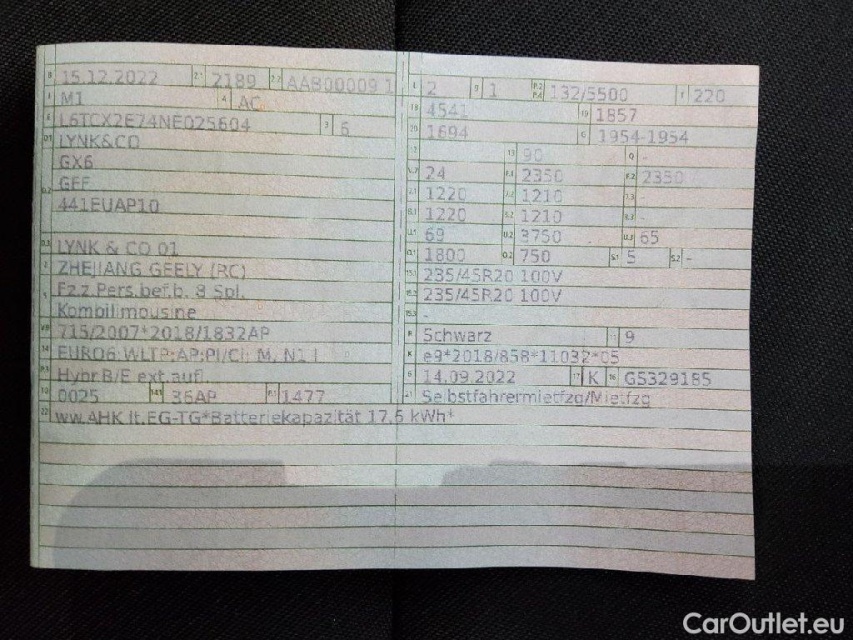 B 15.12.2022 2.1 2189 2.2 AAB00009 1
J M1 4 AC
E L6TCX2E74NE025604 3 6
D.1 LYNK&CO
GX6
D.2 GFF
441EUAP10
D.3 LYNK & CO 01
2 ZHEJIANG GEELY (RC)
5 Fz.z.Pers.bef.b. 8 Spl.
Kombilimousine
V.9 715/2007*2018/1832AP
14 EURO6;WLTP;AP;PI/CI; M, N1 I
P.3 Hybr.B/E ext.aufl.
10 0025 14.1 36AP P.1 1477
22 ww.AHK lt.EG-TG*Batteriekapazität 17,6 kWh*
L 2 9 1 P.2 P.4 132/5500 T 220
18 4541 19 1857
20 1694 G 1954-1954
12 - 13 90 Q -
V.7 24 F.1 2350 F.2 2350
7.1 1220 7.2 1210 7.3 -
8.1 1220 8.2 1210 8.3 -
U.1 69 U.2 3750 U.3 65
O.1 1800 O.2 750 S.1 5 S.2 -
15.1 235/45R20 100V
15.2 235/45R20 100V
15.3 -
R Schwarz 11 9
K e9*2018/858*11032*05
6 14.09.2022 17 K 16 GS329185
21 Selbstfahrermietfzg/Mietfzg
CarOutlet.eu